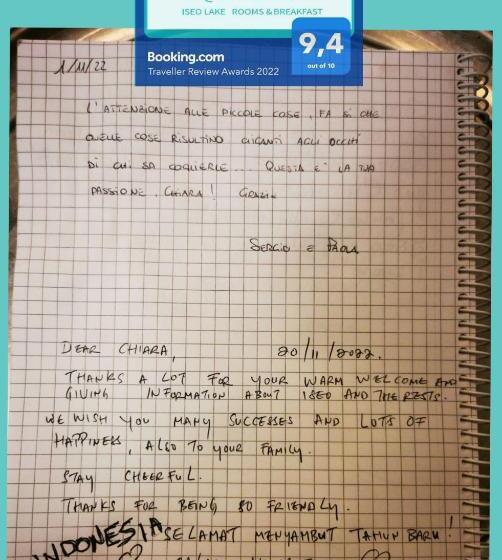 ISEO LAKE ROOMS & BREAKFAST
Booking.com
Traveller Review Awards 2022
9,4
out of 10
1/11/22
L'ATTENZIONE ALLE PICCOLE COSE, FA SÌ CHE
QUELLE COSE RISULTINO GIGANTI AGLI OCCHI
DI CHI SA COGLIERLE... QUESTA È LA TUA
PASSIONE, CHIARA! GRAZIE
SERGIO E PAOLA
DEAR CHIARA, 20/11/2022.
THANKS A LOT FOR YOUR WARM WELCOME AND
GIVING INFORMATION ABOUT ISEO AND THE RESTS.
WE WISH YOU MANY SUCCESSES AND LOTS OF
HAPPINESS, ALSO TO YOUR FAMILY.
STAY CHEERFUL.
THANKS FOR BEING SO FRIENDLY.
INDONESIA SELAMAT MENYAMBUT TAHUN BARU!